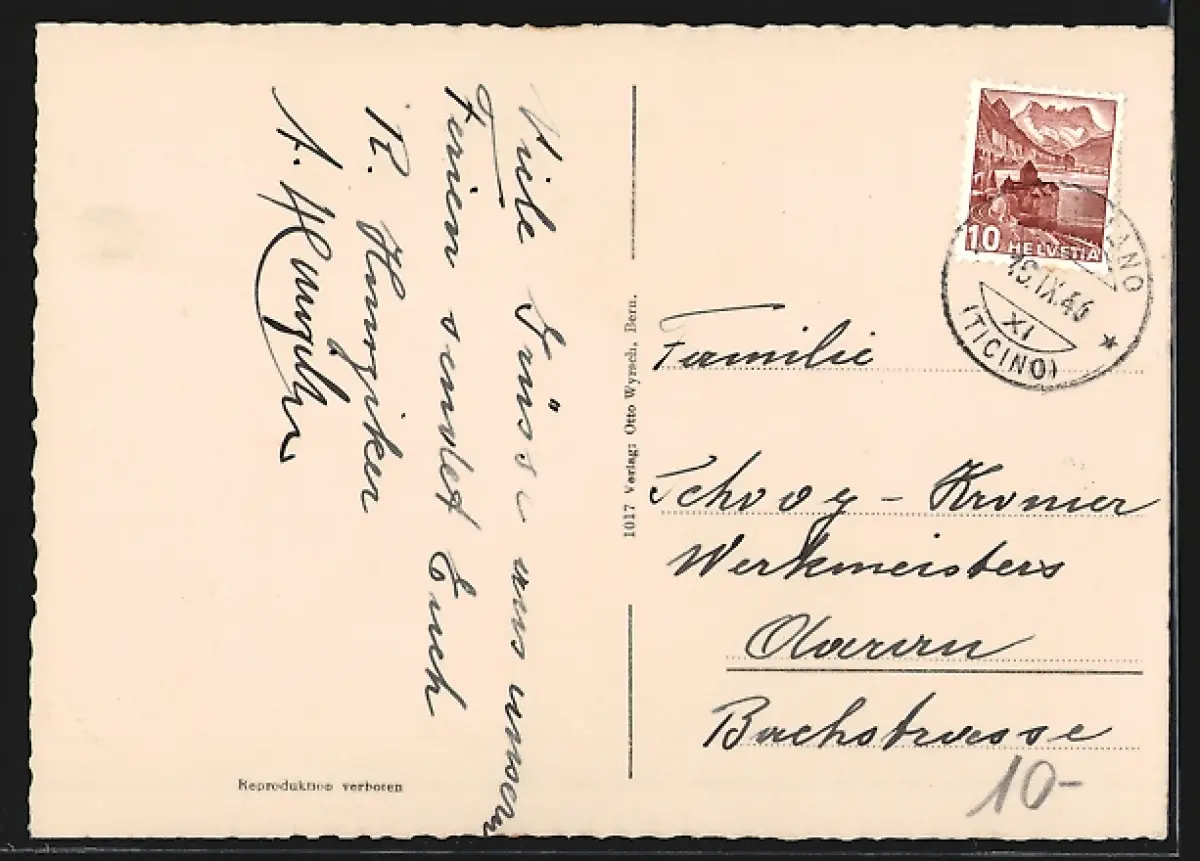 Viele Grüsse aus unsern
Ferien sendet Euch
R. Hunziker
A. Hunziker
1017 Verlag: Otto Wyrsch, Bern.
Reproduktion verboten
10 HELVETIA
ANO
15.IX.46
XI
(TICINO)
Familie
Schoog - Kromer
Werkmeisters
Aarau
Bachstrasse
10-